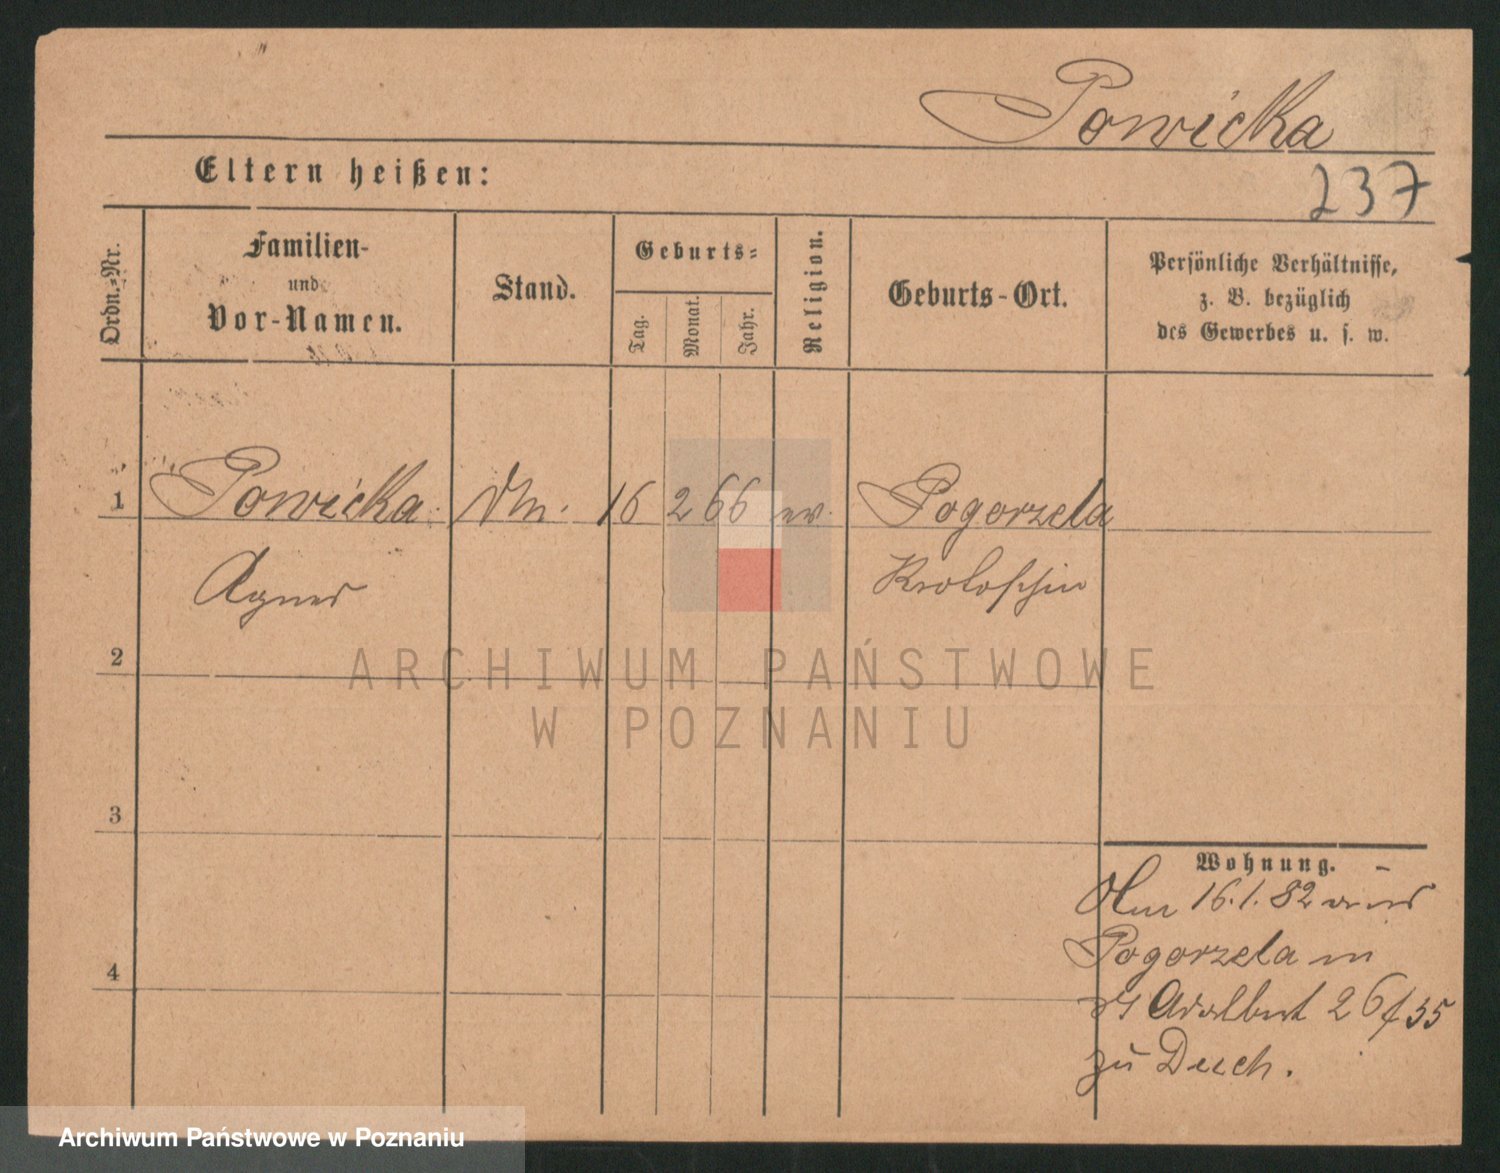 Powicka
Eltern heißen:
237
Ordn.-Nr.
Familien-
und
Vor-Namen.
Stand.
Geburts-
Tag.
Monat.
Jahr.
Religion.
Geburts-Ort.
Persönliche Verhältnisse,
z. B. bezüglich
des Gewerbes u. s. w.
1 Powicka 16 2 66 Pogorzela
Agnes Krotoschin
2
3
4
Wohnung.
Am 16.1.82 aus
Pogorzela in
St Adalbert 26/35
zu Duch.
ARCHIWUM PAŃSTWOWE
W POZNANIU
Archiwum Państwowe w Poznaniu